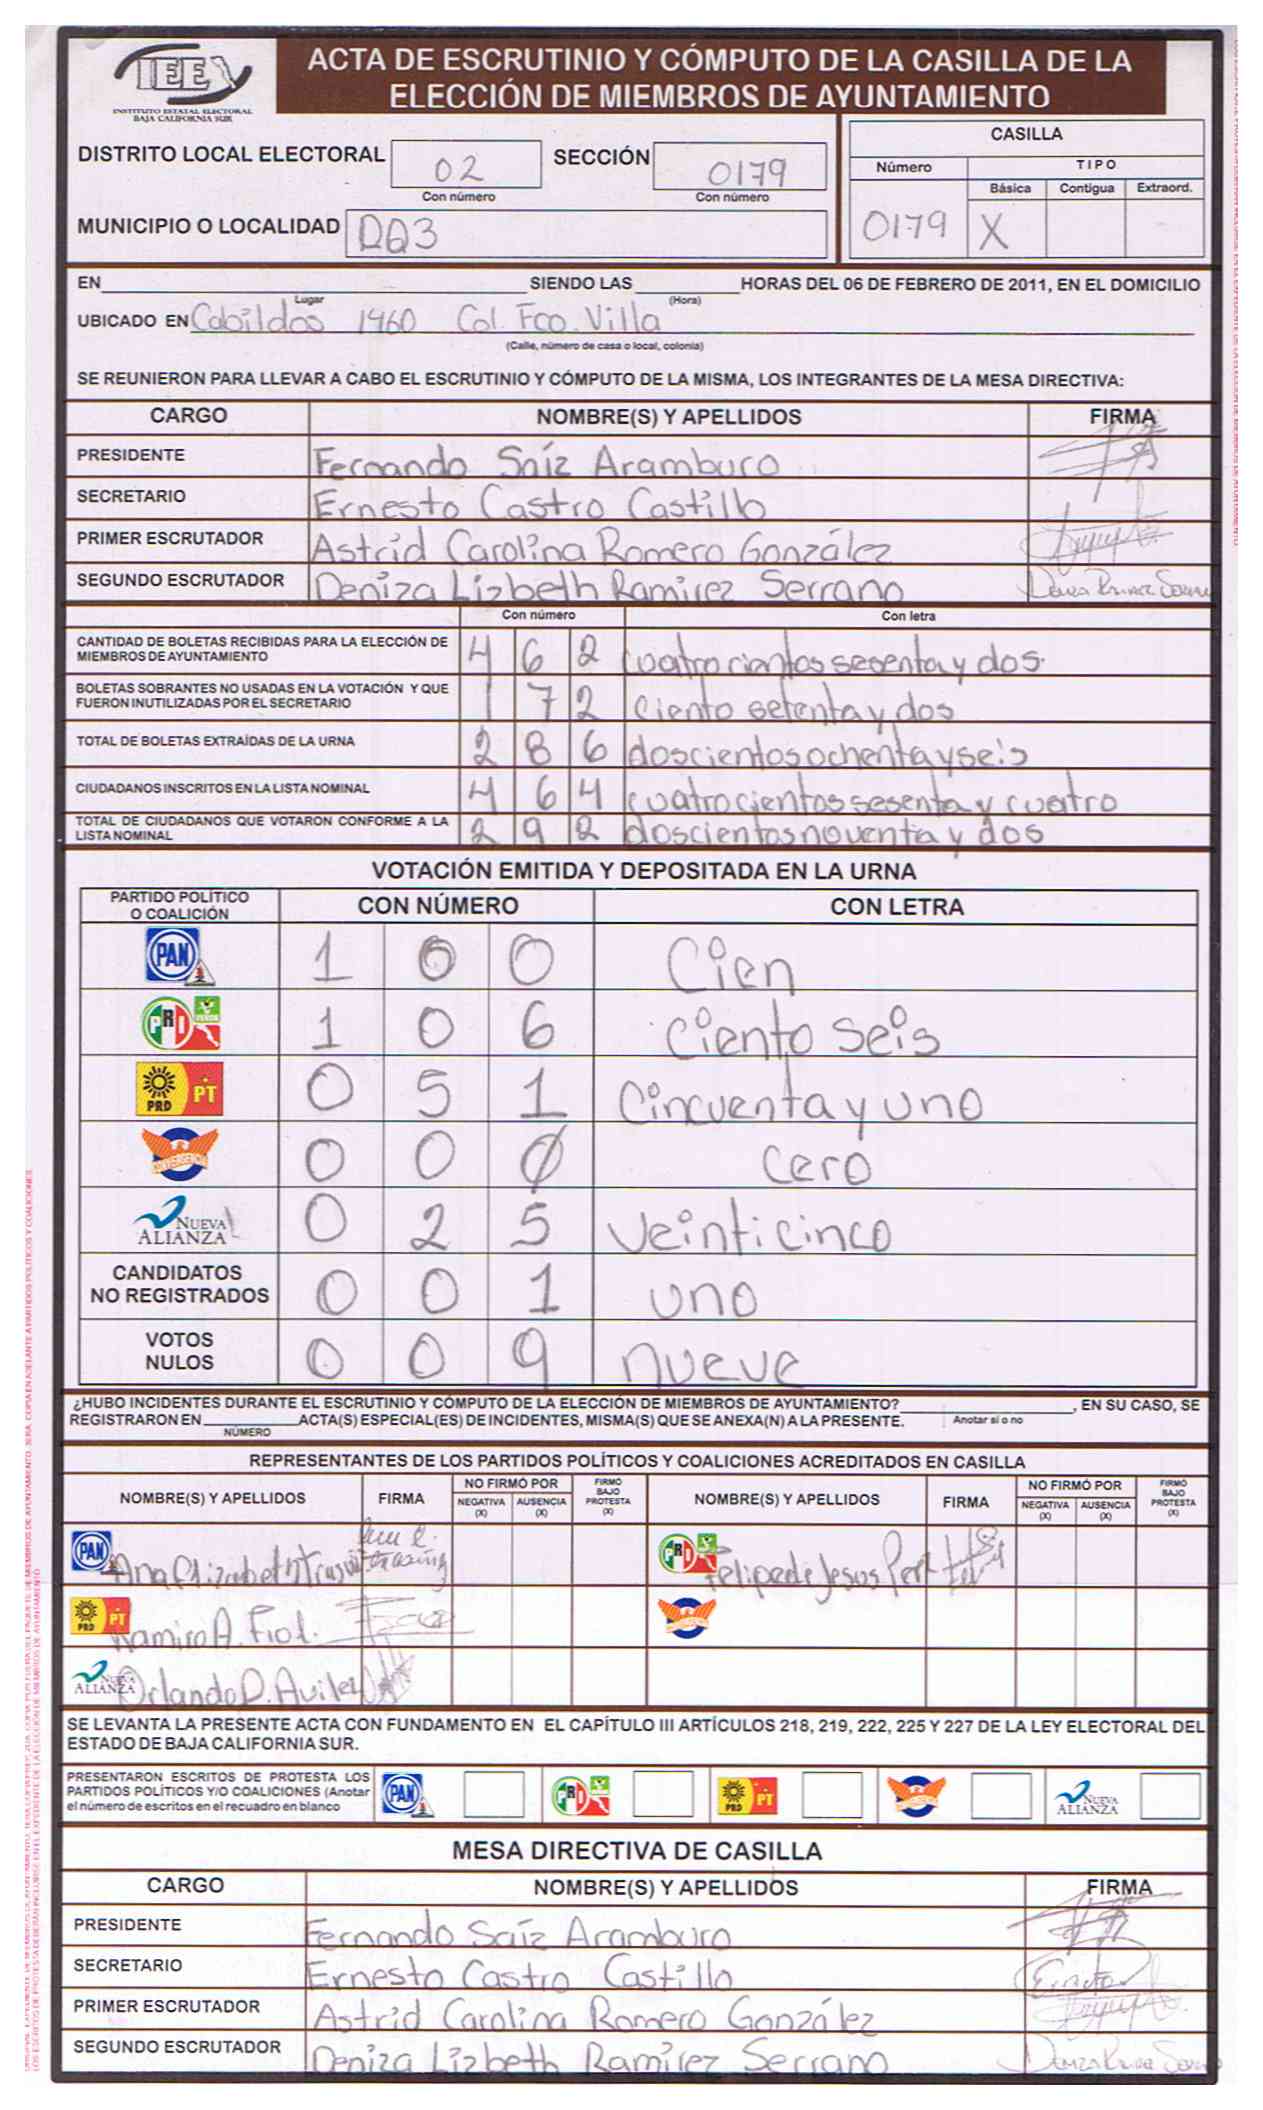 IEEX
INSTITUTO ESTATAL ELECTORAL
BAJA CALIFORNIA SUR
ACTA DE ESCRUTINIO Y CÓMPUTO DE LA CASILLA DE LA
ELECCIÓN DE MIEMBROS DE AYUNTAMIENTO
DISTRITO LOCAL ELECTORAL 02 SECCIÓN 0179
Con número Con número
MUNICIPIO O LOCALIDAD
CASILLA
Número TIPO
Básica Contigua Extraord.
0179 X
EN SIENDO LAS HORAS DEL 06 DE FEBRERO DE 2011, EN EL DOMICILIO
Lugar (Hora)
UBICADO EN Cabildos 1960 Col. Fco. Villa
(Calle, número de casa o local, colonia)
SE REUNIERON PARA LLEVAR A CABO EL ESCRUTINIO Y CÓMPUTO DE LA MISMA, LOS INTEGRANTES DE LA MESA DIRECTIVA:
CARGO NOMBRE(S) Y APELLIDOS FIRMA
PRESIDENTE Fernando Saíz Aramburo
SECRETARIO Ernesto Castro Castillo
PRIMER ESCRUTADOR Astrid Carolina Romero González
SEGUNDO ESCRUTADOR Deniza Lizbeth Ramirez Serrano
Con número Con letra
CANTIDAD DE BOLETAS RECIBIDAS PARA LA ELECCIÓN DE
MIEMBROS DE AYUNTAMIENTO 4 6 2 cuatrocientos sesenta y dos.
BOLETAS SOBRANTES NO USADAS EN LA VOTACIÓN Y QUE
FUERON INUTILIZADAS POR EL SECRETARIO 1 7 2 ciento setenta y dos
TOTAL DE BOLETAS EXTRAÍDAS DE LA URNA 2 8 6 doscientos ochenta y seis
CIUDADANOS INSCRITOS EN LA LISTA NOMINAL 4 6 4 cuatrocientos sesenta y cuatro
TOTAL DE CIUDADANOS QUE VOTARON CONFORME A LA
LISTA NOMINAL 2 9 2 doscientos noventa y dos
VOTACIÓN EMITIDA Y DEPOSITADA EN LA URNA
PARTIDO POLÍTICO
O COALICIÓN CON NÚMERO CON LETRA
PAN 1 0 0 Cien
PRI VERDE 1 0 6 Ciento seis
PRD PT 0 5 1 Cincuenta y uno
CONVERGENCIA 0 0 0 cero
NUEVA ALIANZA 0 2 5 veinticinco
CANDIDATOS
NO REGISTRADOS 0 0 1 uno
VOTOS
NULOS 0 0 9 nueve
¿HUBO INCIDENTES DURANTE EL ESCRUTINIO Y CÓMPUTO DE LA ELECCIÓN DE MIEMBROS DE AYUNTAMIENTO? , EN SU CASO, SE
REGISTRARON EN ACTA(S) ESPECIAL(ES) DE INCIDENTES, MISMA(S) QUE SE ANEXA(N) A LA PRESENTE. Anotar sí o no
NÚMERO
REPRESENTANTES DE LOS PARTIDOS POLÍTICOS Y COALICIONES ACREDITADOS EN CASILLA
NOMBRE(S) Y APELLIDOS FIRMA NO FIRMÓ POR NEGATIVA (X) AUSENCIA (X) FIRMÓ BAJO PROTESTA (X) NOMBRE(S) Y APELLIDOS FIRMA NO FIRMÓ POR NEGATIVA (X) AUSENCIA (X) FIRMÓ BAJO PROTESTA (X)
PAN Ana Elizabeth PRI Felipe de Jesus
PRD PT Ramiro A. Fiol.
NUEVA ALIANZA Orlando D. Aviles
SE LEVANTA LA PRESENTE ACTA CON FUNDAMENTO EN EL CAPÍTULO III ARTÍCULOS 218, 219, 222, 225 Y 227 DE LA LEY ELECTORAL DEL
ESTADO DE BAJA CALIFORNIA SUR.
PRESENTARON ESCRITOS DE PROTESTA LOS
PARTIDOS POLÍTICOS Y/O COALICIONES (Anotar
el número de escritos en el recuadro en blanco
PAN PRI PRD PT NUEVA ALIANZA
MESA DIRECTIVA DE CASILLA
CARGO NOMBRE(S) Y APELLIDOS FIRMA
PRESIDENTE Fernando Saíz Aramburo
SECRETARIO Ernesto Castro Castillo
PRIMER ESCRUTADOR Astrid Carolina Romero González
SEGUNDO ESCRUTADOR Deniza Lizbeth Ramirez Serrano